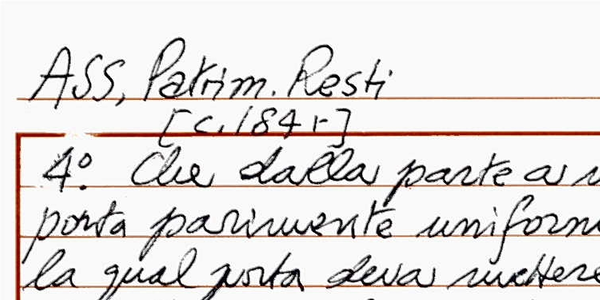 ASS, Patrim. Resti
[c. 184 r]
4° Che dalla parte a
porta parimente uniform
la qual porta deva mettere